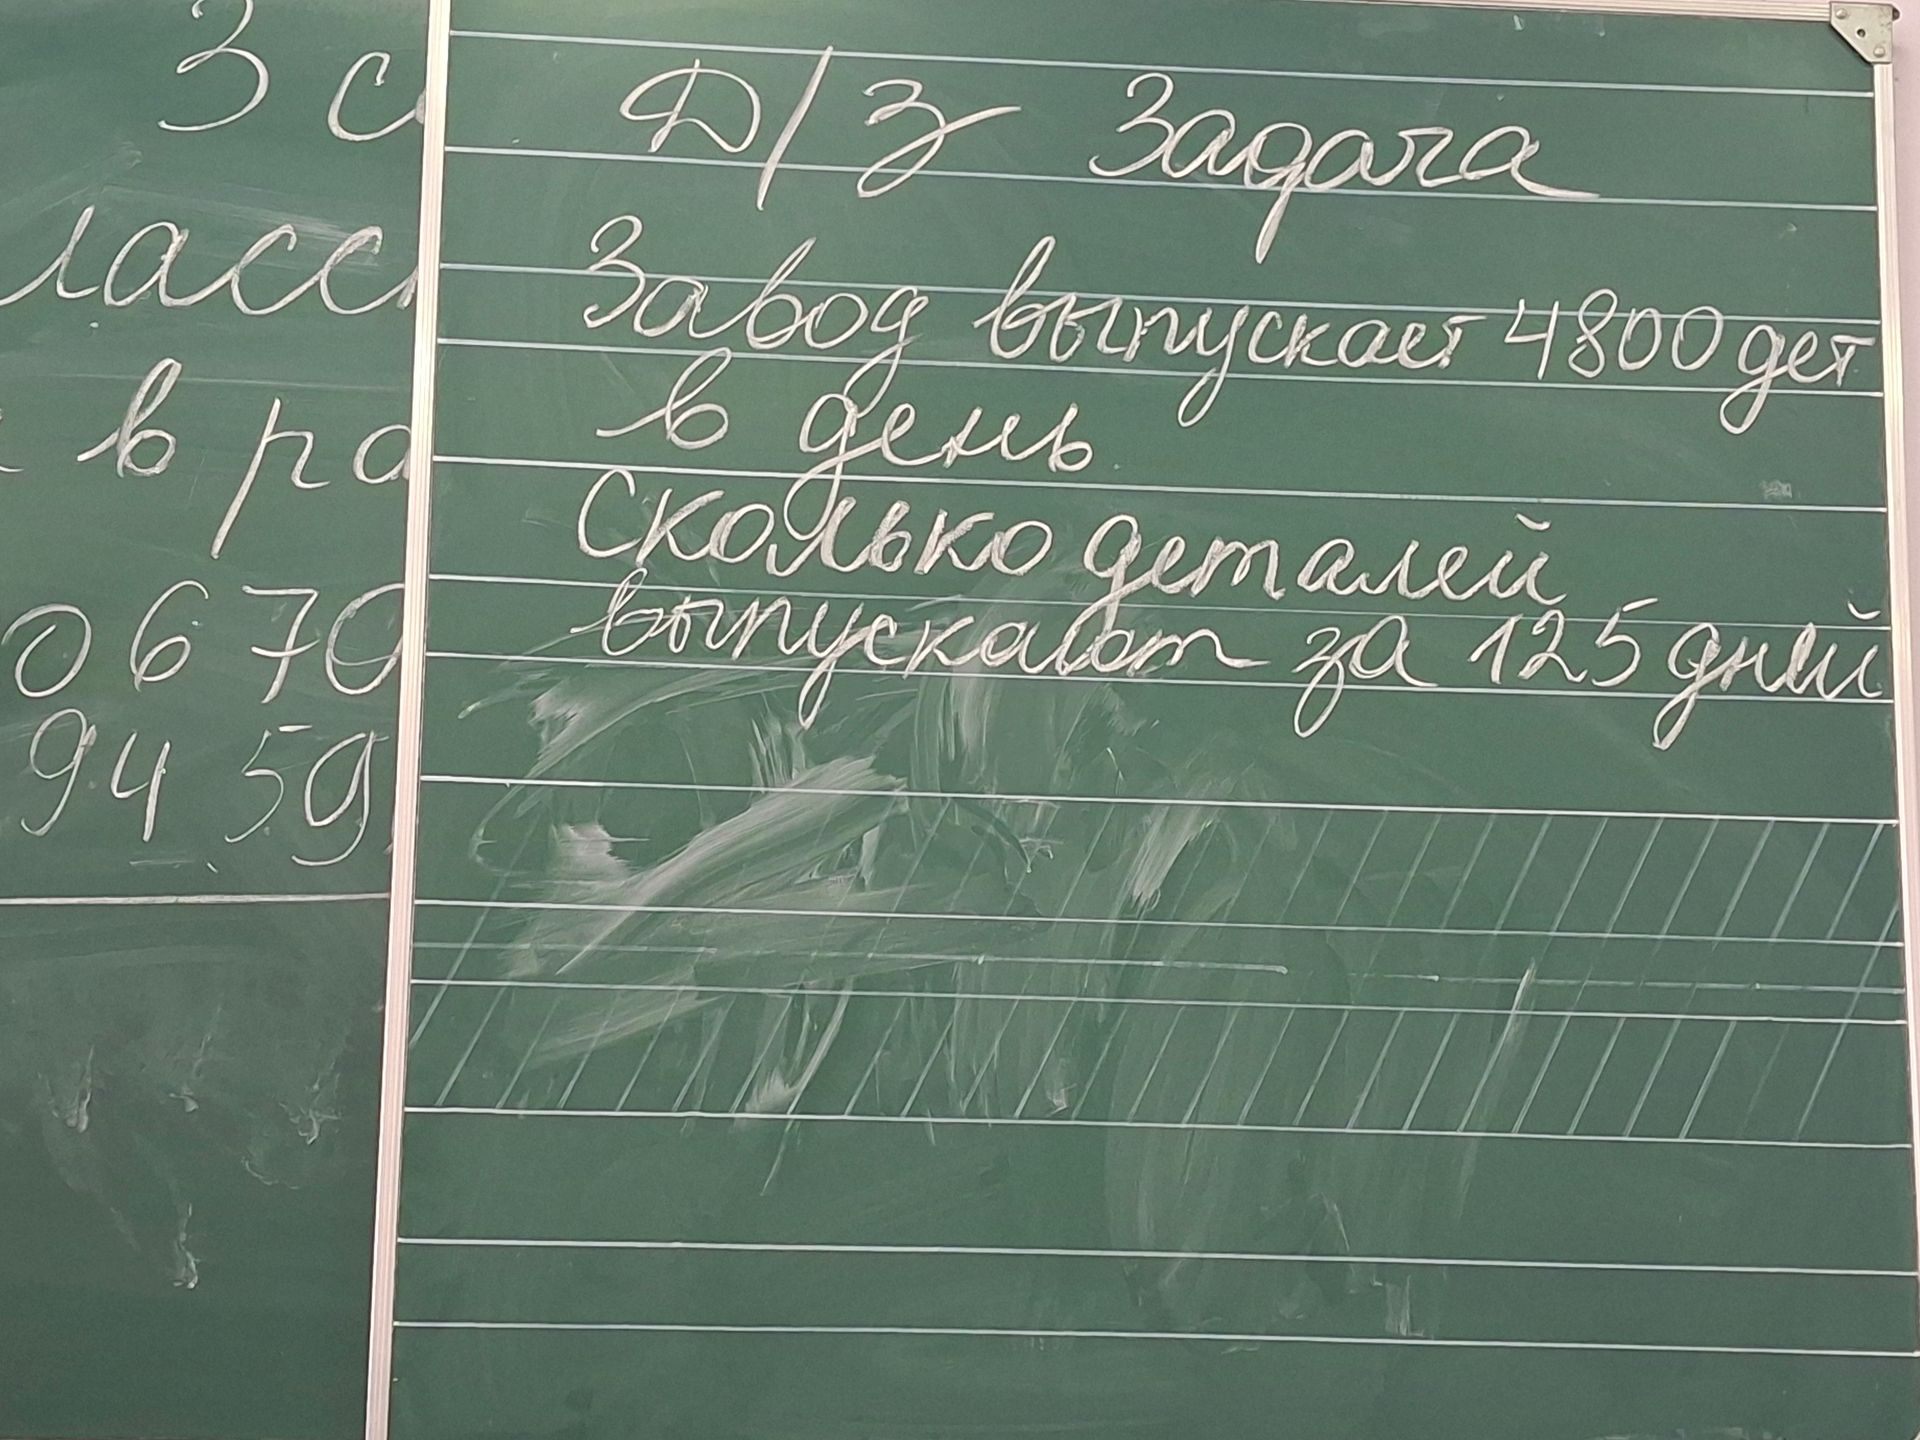 3 с
ласс
в ра
0670
9459
Д/З Задача
Завод выпускает 4800 дет
в день
Сколько деталей
выпускают за 125 дней